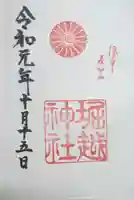 堀越
神社
令和元年十月十五日